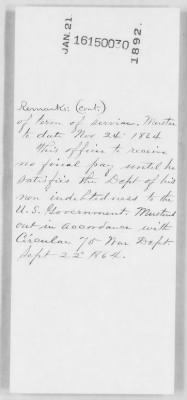 JAN. 21.
16150070
1892.
Remarks: (cont.)
of term of service. Muster
to date Nov 24 1864
This officer to receive
no final pay until he
satisfies the Dept of his
non indebtedness to the
U.S. Government. Mustered
out in accordance with
Circular 75 War Dept.
Sept 22 1864.